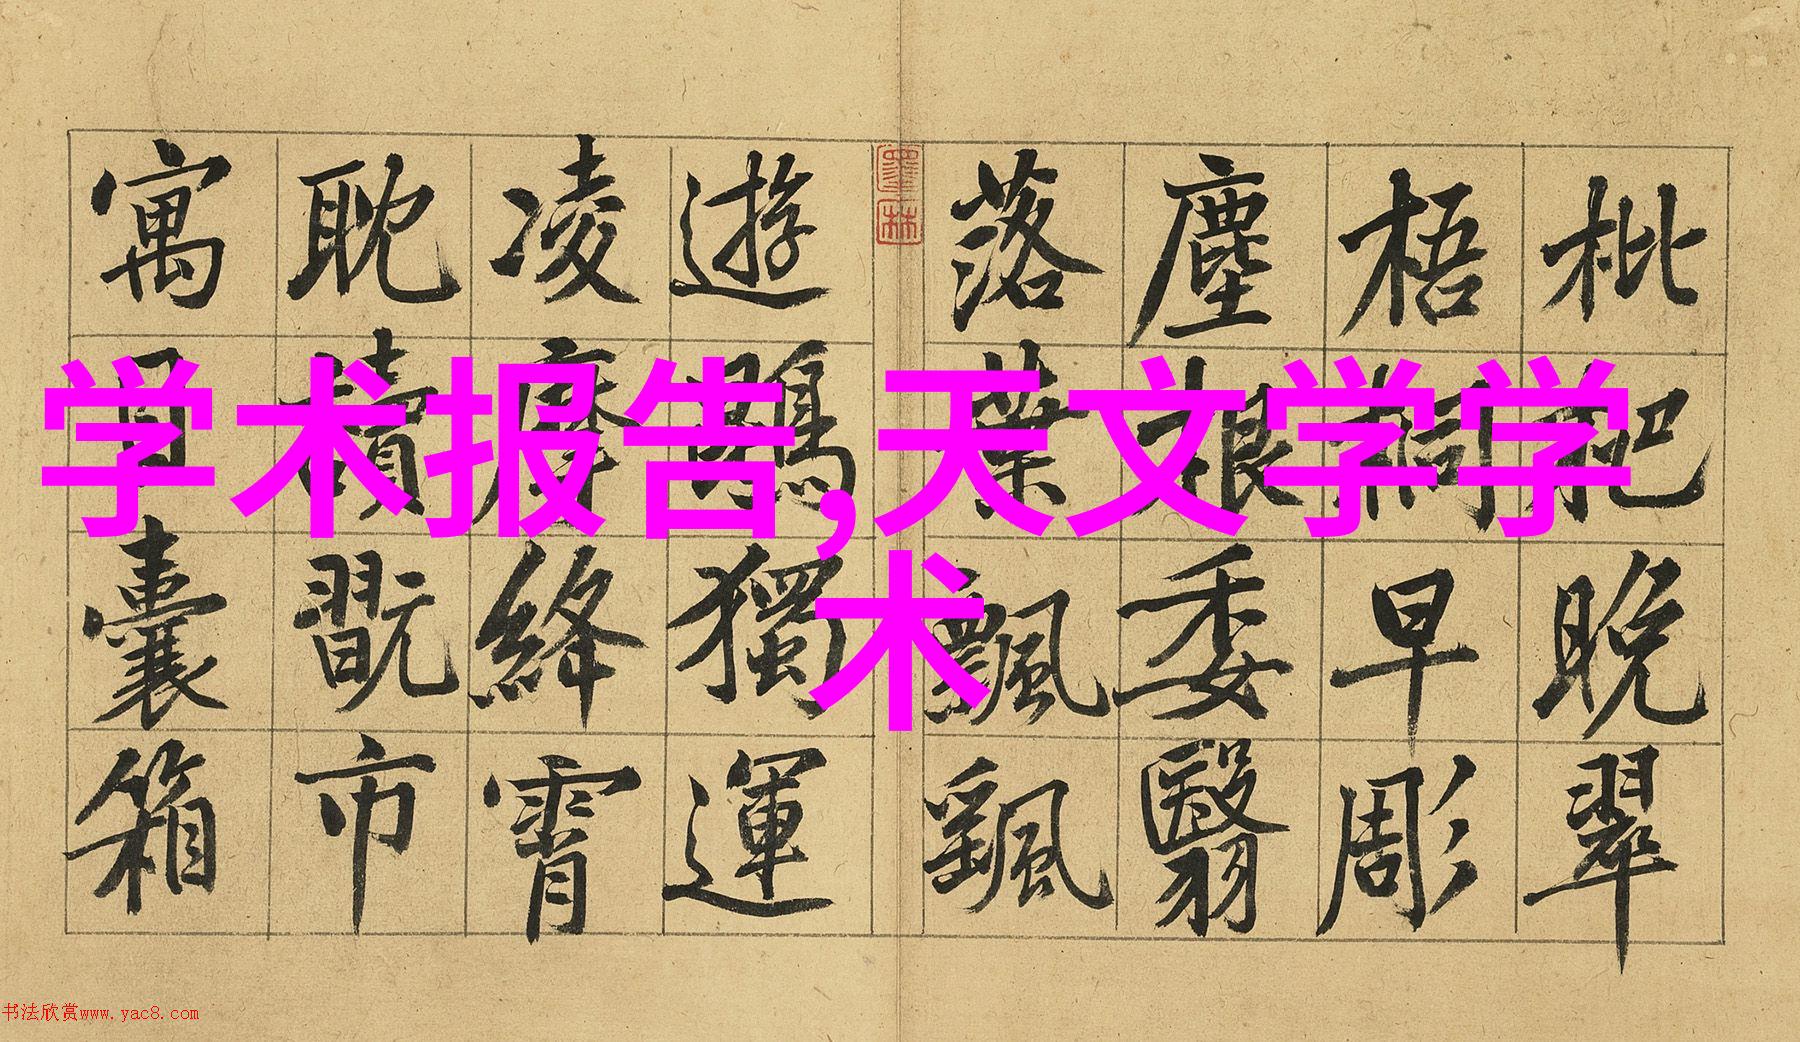 学术报告,天文学学
术
枇杷晚翠
梧桐早彫
塵根委翳
落葉飄颻
遊鵾獨運
凌摩絳霄
耽讀翫市
寓目囊箱
墨林
书法欣赏www.yac8.com